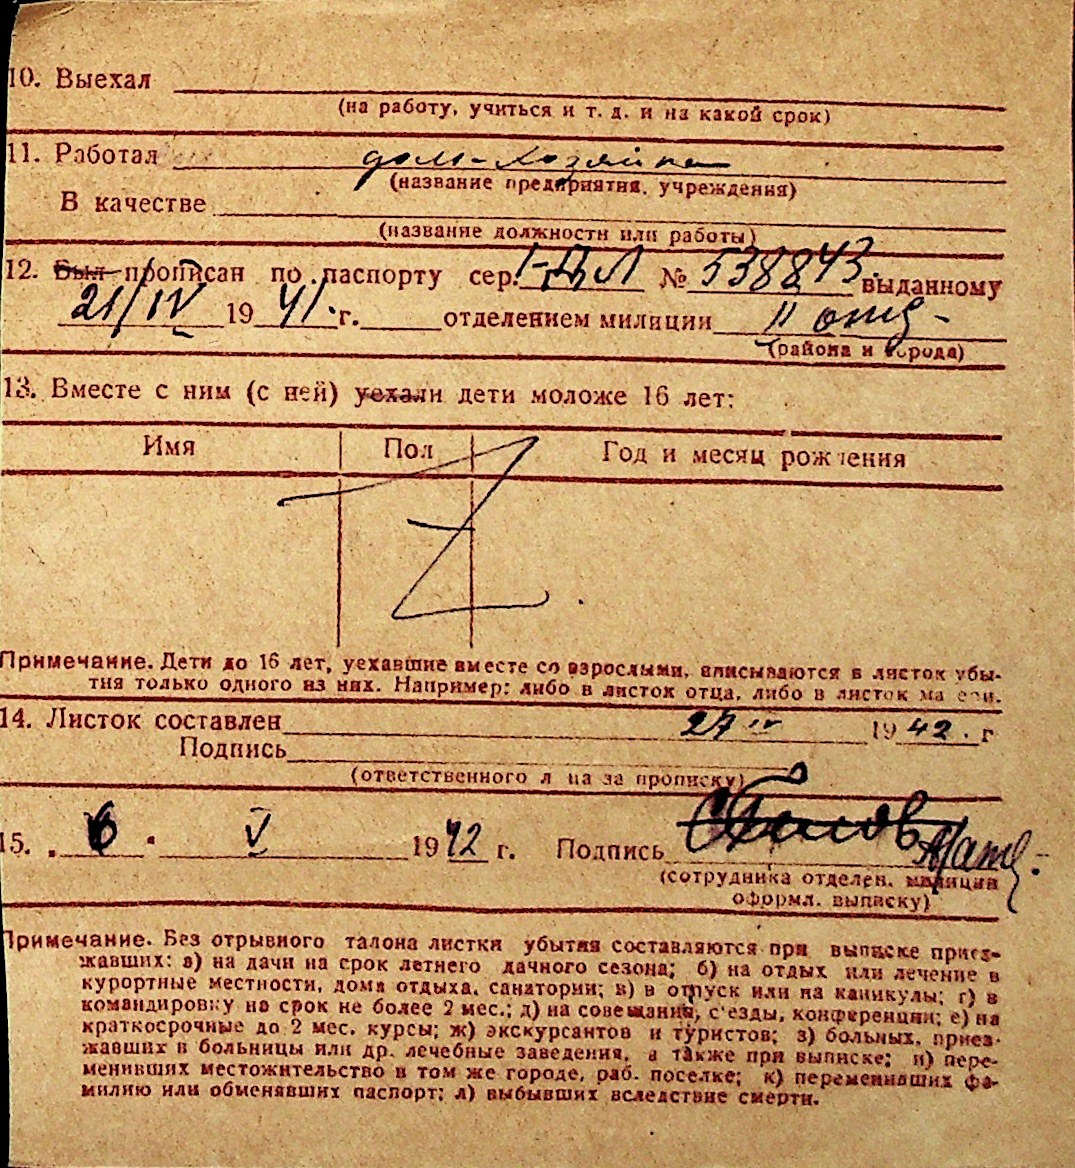 10. Выехал
(на работу, учиться и т. д. и на какой срок)
11. Работал дом-хозяйка
(название предприятия, учреждения)
В качестве
(название должности или работы)
12. Был прописан по паспорту сер. I-ДЛ № 538843 выданному
21/IV 1941 г. отделением милиции 11 отд-
(района и города)
13. Вместе с ним (с ней) уехали дети моложе 16 лет:
Имя Пол Год и месяц рождения
Z
Примечание. Дети до 16 лет, уехавшие вместе со взрослыми, вписываются в листок убы-
тия только одного из них. Например: либо в листок отца, либо в листок матери.
14. Листок составлен 27 IV 1942. г
Подпись
(ответственного лица за прописку)
15. „6“ V 1942 г. Подпись
(сотрудника отделен. милиции
оформл. выписку)
Примечание. Без отрывного талона листки убытия составляются при выписке приез-
жавших: а) на дачи на срок летнего дачного сезона; б) на отдых или лечение в
курортные местности, дома отдыха, санатории; в) в отпуск или на каникулы; г) в
командировку на срок не более 2 мес.; д) на совещания, с'езды, конференции; е) на
краткосрочные до 2 мес. курсы; ж) экскурсантов и туристов; з) больных, приез-
жавших в больницы или др. лечебные заведения, а также при выписке; и) пере-
менивших местожительство в том же городе, раб. поселке; к) переменивших фа-
милию или обменявших паспорт; л) выбывших вследствие смерти.